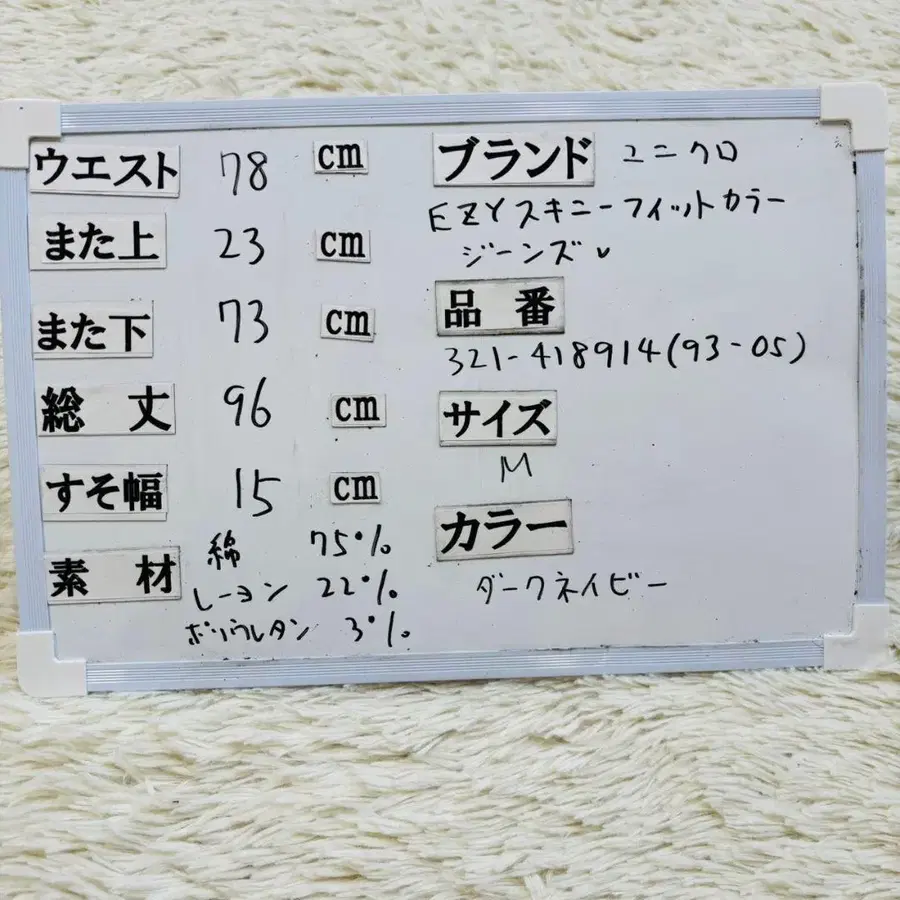 ウエスト 78 cm
また上 23 cm
また下 73 cm
総丈 96 cm
すそ幅 15 cm
素材 綿 75%
レーヨン 22%
ポリウレタン 3%
ブランド ユニクロ
EZYスキニーフィットカラー
ジーンズ
品番
321-418914(93-05)
サイズ
M
カラー
ダークネイビー